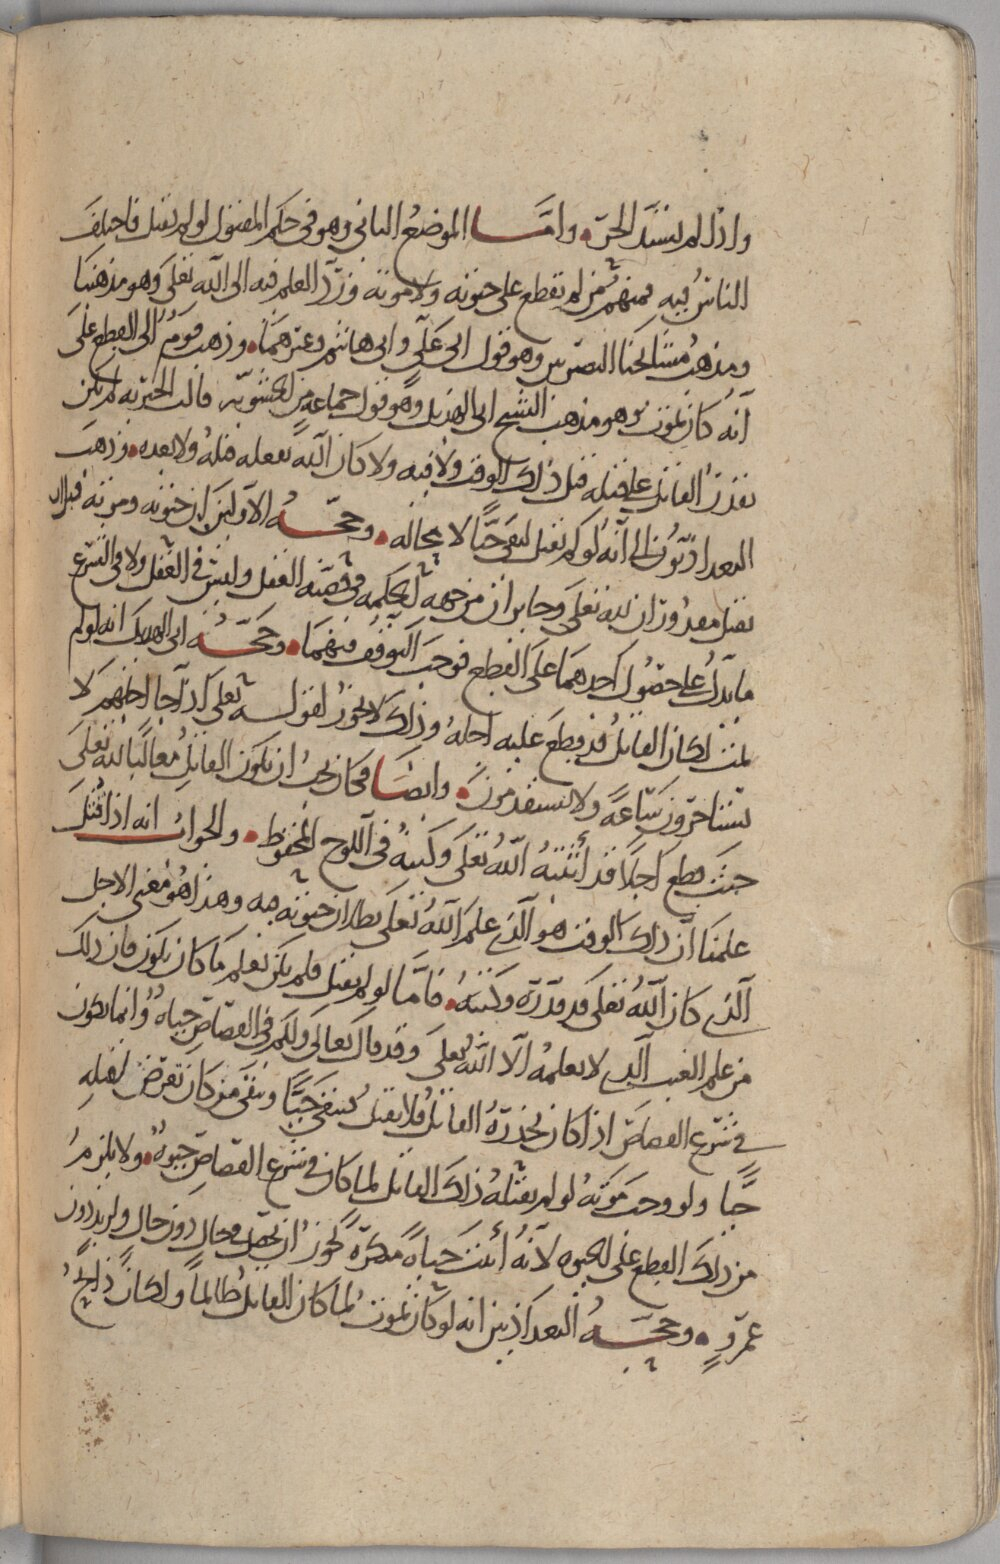 واذا لم يستند الحز • وامـــا الموضع الثاني وهو في حكم المقتول لو لم يقتل فاختلف
الناس فيه فمنهم من لم يقطع على حيوته ولا موته ورد العلم فيه الى الله تعلى وهو مذهبنا
ومذهب مشايخنا البصريين وهو قول ابي علي وابي هاشم وغيرهما • وذهب قوم الى القطع على
انه كان يموت وهو مذهب الشيخ ابي الهذيل وهو قول جماعة من الحشوية قالت الجبرية لم يكن
يقدر القاتل على قتله قبل ذلك الوقت ولا فيه ولا كان الله يفعله قبله ولا بعده • وذهب
البغداديون الى انه لو لم يقتل لبقي حيا لا محالة • وحجـــة الاولين ان حيوته وموته قبل ان
يقتل مقدوران لله تعلى وجايزان من جهة الحكمة في قضية العقل وليس في العقل ولا في الشرع
ما يدل على حصول احدهما على القطع فوجب التوقف فيهما • وحجـــة ابي الهذيل انه لو لم
يمت لكان القاتل قد قطع عليه اجله وذلك لا يجوز لقولـــه تعلى اذا جا اجلهم لا
يستاخرون ساعة ولا يستقدمون • وايضـــا فكان يجب ان يكون القاتل مغالبا لله تعلى
حيث قطع اجلا قد أثبته الله تعلى وكتبه في اللوح المحفوظ • والجواب انه اذا قتل
علمنا ان ذلك الوقت هو الذي علم الله تعلى بطلان حيوته فيه وهذا هو معنى الاجل
الذي كان الله تعلى قد قدره وكتبه • فاما لو لم يقتل فلم يكن يعلم ما كان يكون فان ذلك
من علم الغيب الذي لا يعلمه الا الله تعلى وقد قال تعالى ولكم في القصاص حياة وانما يكون
في شرع القصاص اذا كان يحذره القاتل فلا يقتل فيبقى حيا ويبقى من كان تعرض لقتله
حيا ولو وجب موته لو لم يقتله ذلك القاتل لما كان في شرع القصاص حيوة • ولا يلزم
من ذلك القطع على الحيوة لانه أثبت حياة منكرة يجوز ان يحصل في حال دون حال ولزيد دون
عمرو • وحجـــة البغداذيين انه لو كان يموت لما كان القاتل ظالما ولكان ذابح